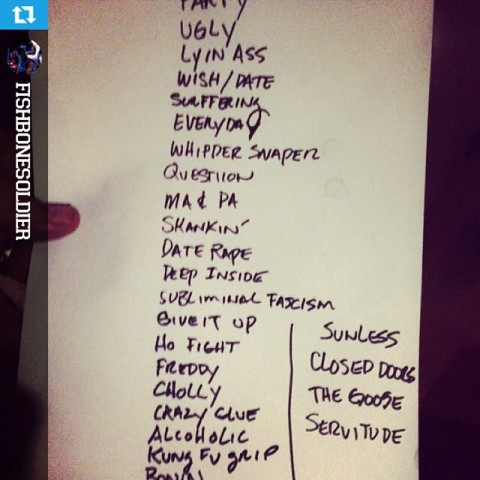 FISHBONESOLDIER
PARTY
UGLY
LYIN ASS
WISH/DATE
SURFFERING
EVERYDAY
WHIPPER SNAPER
QUESTION
MA & PA
SKANKIN'
DATE RAPE
DEEP INSIDE
SUBLIMINAL FASCISM
GIVE IT UP
HO FIGHT
FREDDY
CHOLLY
CRAZY GLUE
ALCOHOLIC
KUNG FU GRIP
SUNLESS
CLOSED DOORS
THE GOOSE
SERVITUDE